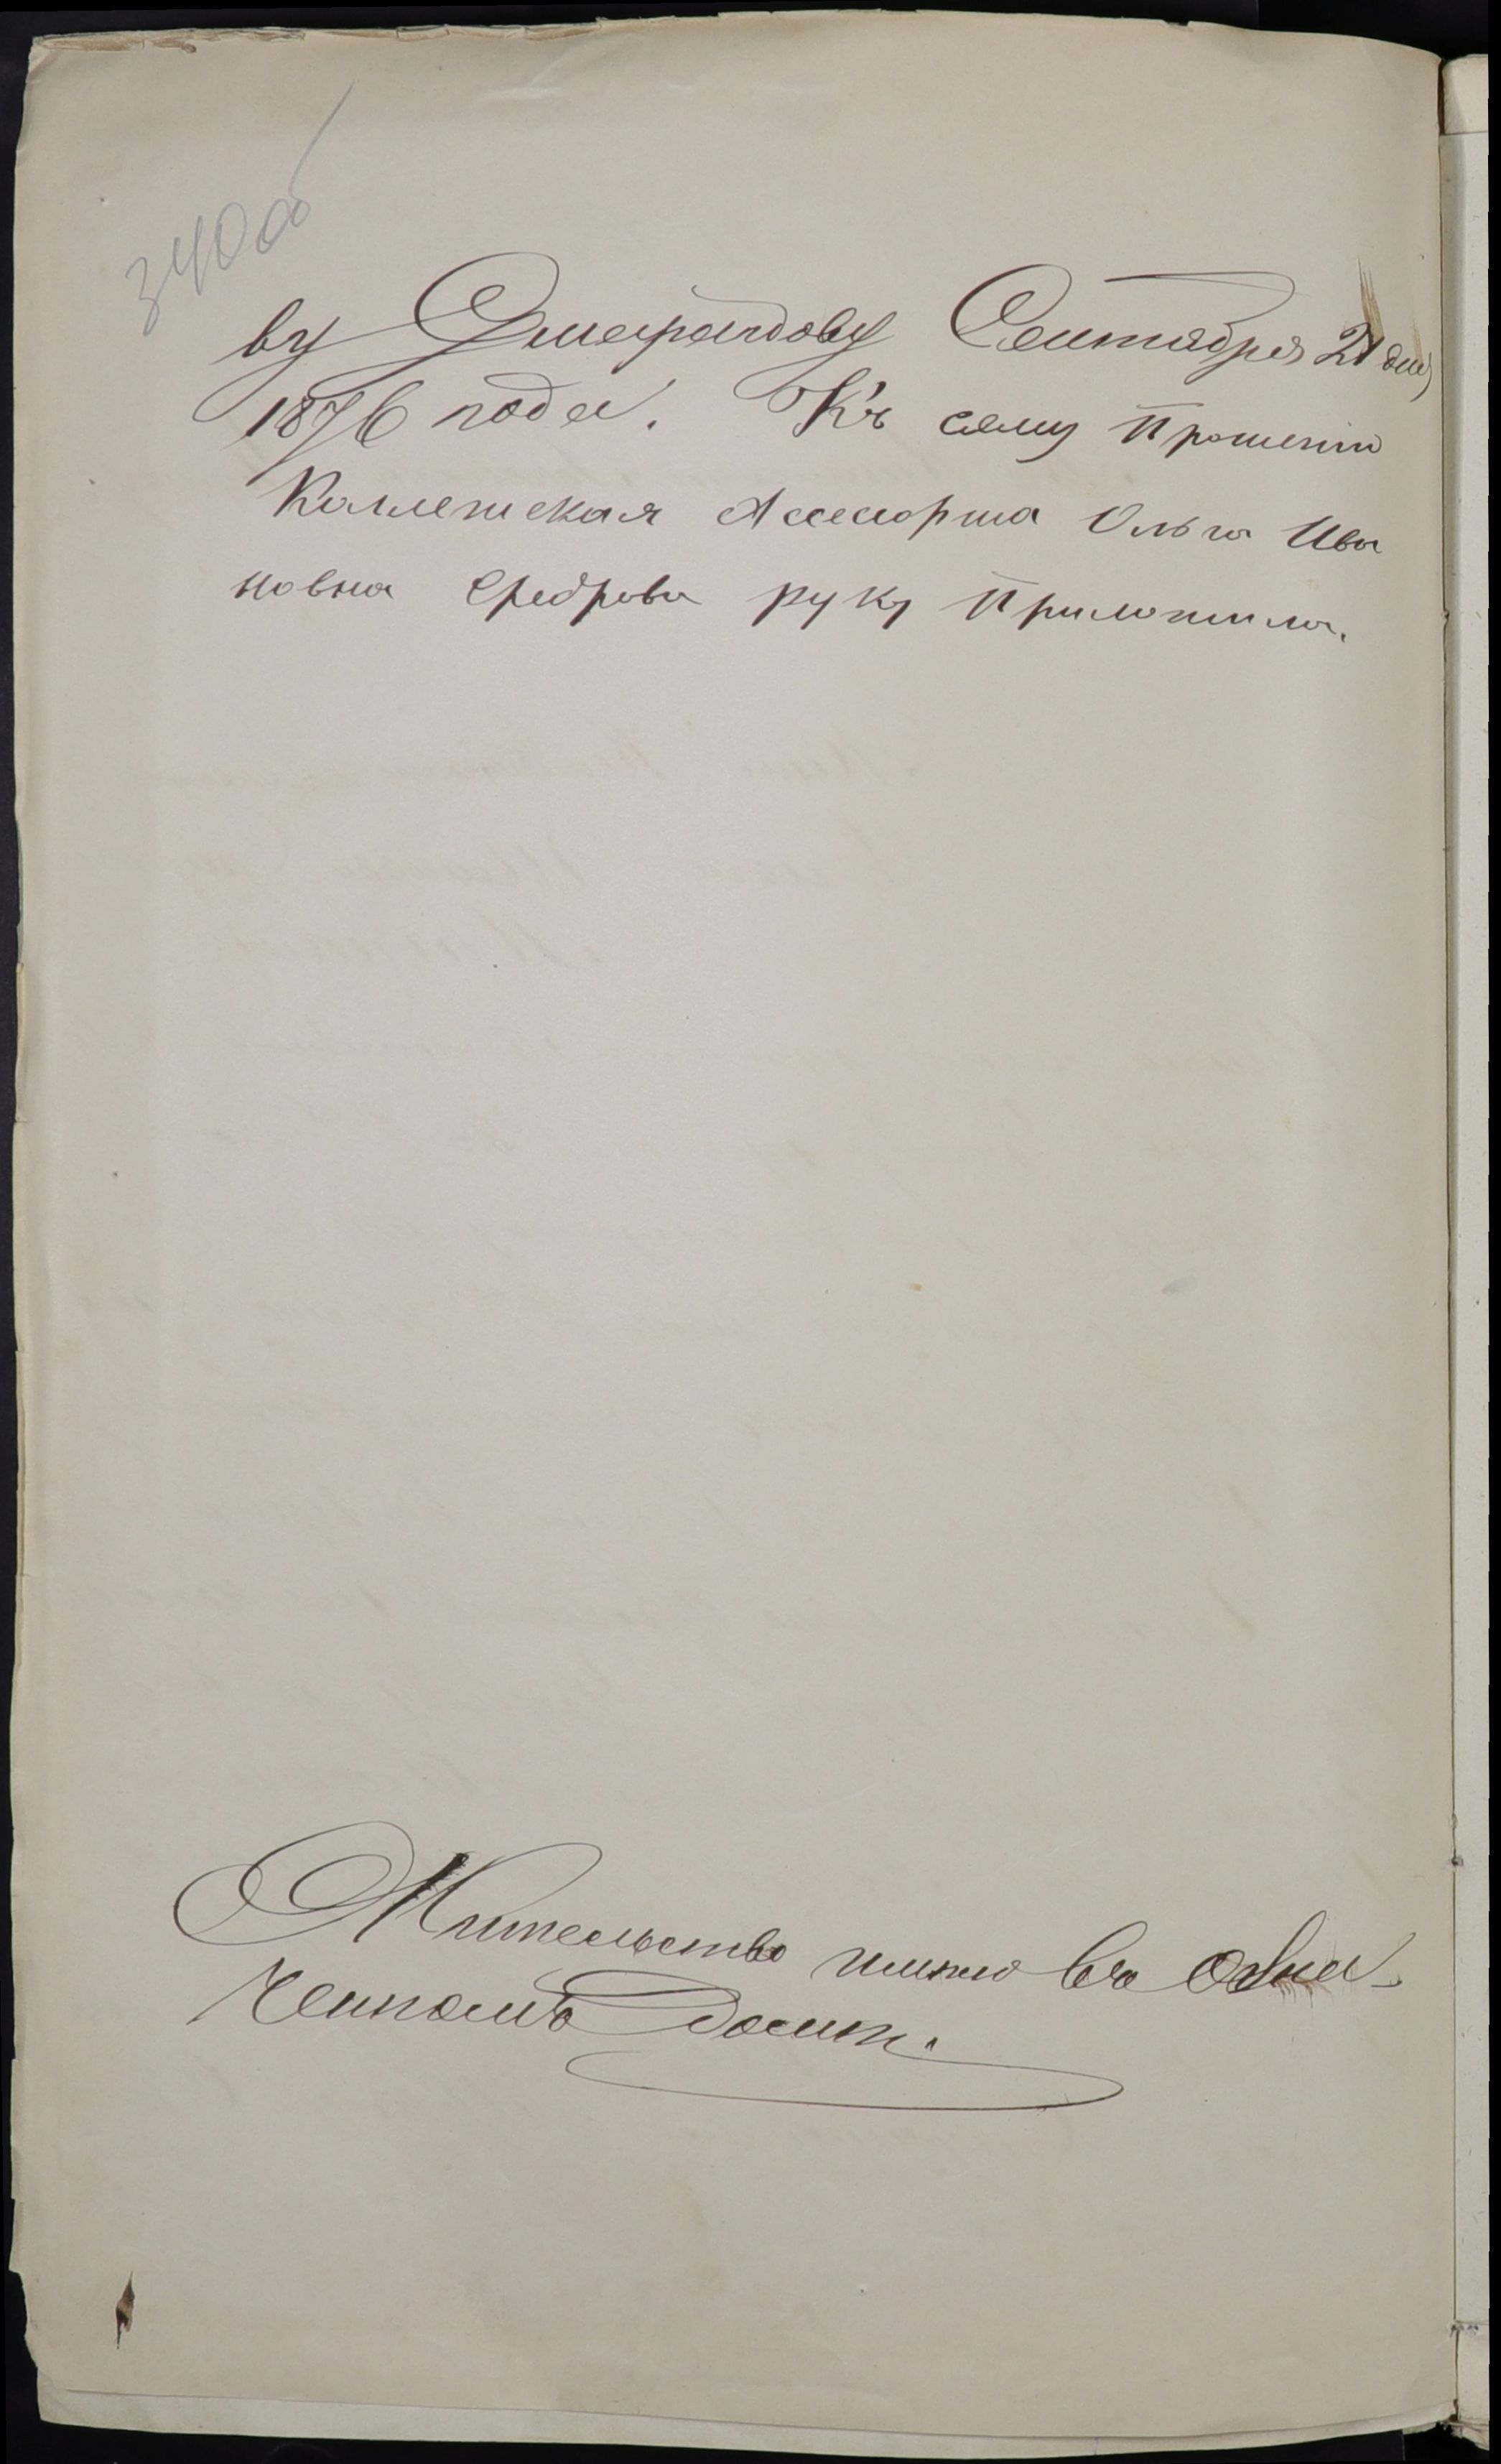 340 об
ву Смарагдову Сентября 21 дня
1876 года. Къ сему Прошенію
Коллежская Ассесорша Ольга Ива
новна руку Приложила.
Жительство имею въ озна-
ченномъ доме.